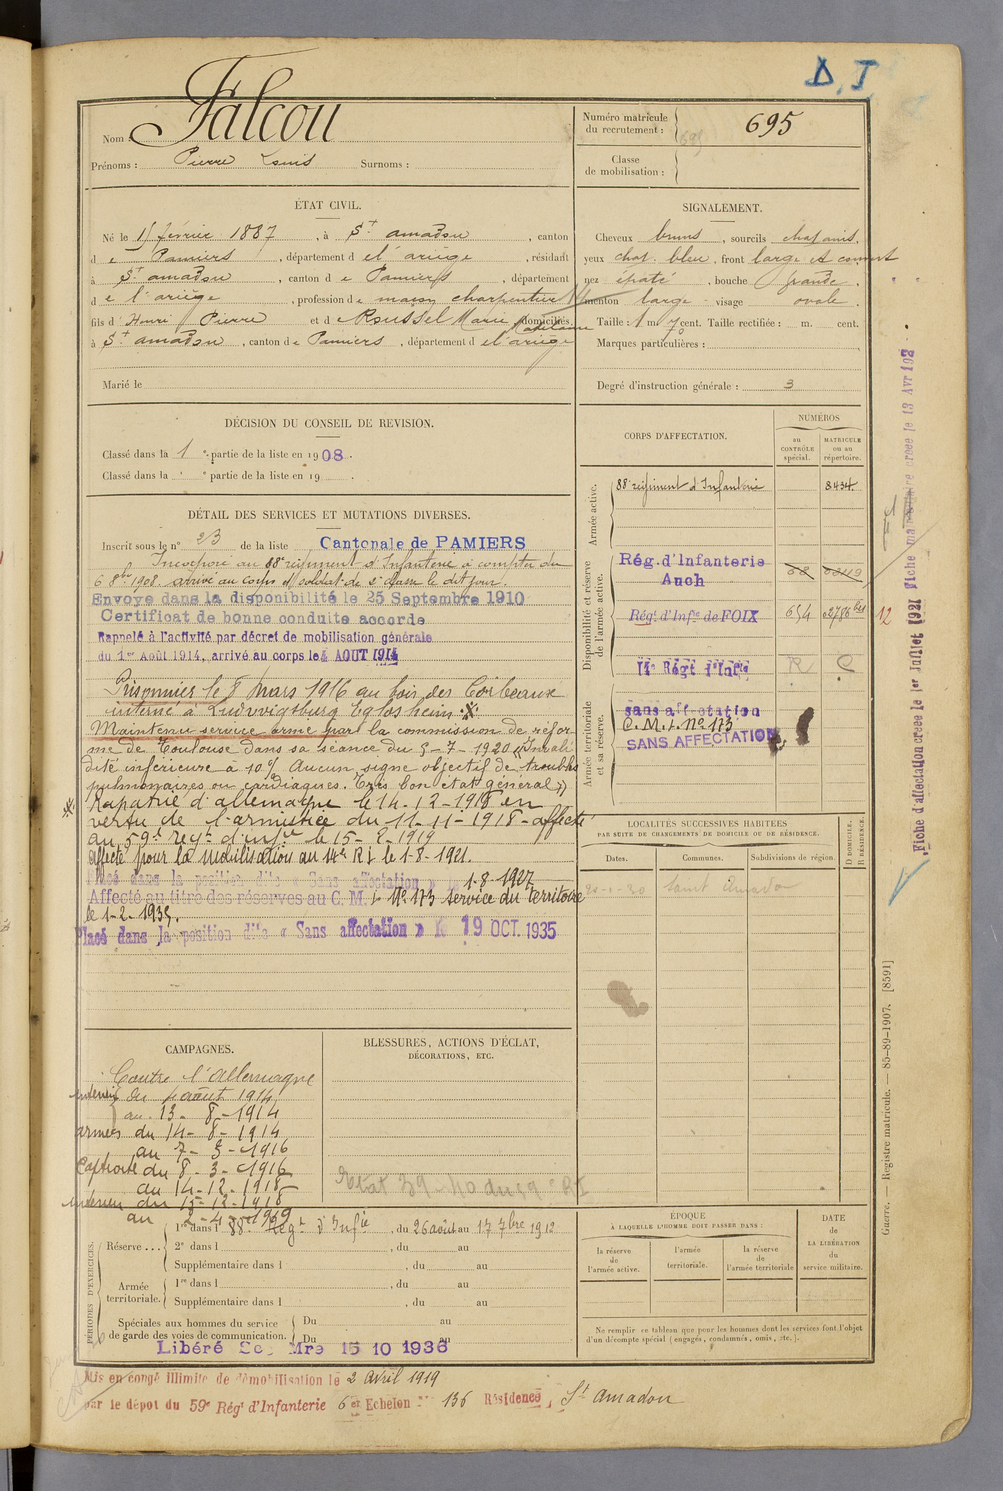 D. I
Nom : Falcou
Prénoms : Pierre Louis Surnoms :
Numéro matricule du recrutement : 695
Classe de mobilisation :
ÉTAT CIVIL.
Né le 15 février 1887, à St amadou, canton
de Pamiers, département de l'ariège, résidant
à St amadou, canton de Pamiers, département
de l'ariège, profession de maçon charpentier
fils d'Henri Pierre et de Roussel Marie domiciliés
à St amadou, canton de Pamiers, département de l'ariège
Marié le
SIGNALEMENT.
Cheveux bruns, sourcils chatains,
yeux chat. bleu, front large et couvert
nez épaté, bouche grande,
menton large visage ovale.
Taille : 1 m. 7 cent. Taille rectifiée : m. cent.
Marques particulières :
Degré d'instruction générale : 3
DÉCISION DU CONSEIL DE REVISION.
Classé dans la 1e partie de la liste en 1908.
Classé dans la e partie de la liste en 19 .
CORPS D'AFFECTATION.
NUMÉROS
au CONTRÔLE spécial.
MATRICULE ou au répertoire.
Armée active.
88e régiment d'Infanterie 8434
Disponibilité et réserve de l'armée active.
Rég. d'Infanterie Auch
Régt d'Infie de FOIX 654
Armée territoriale et sa réserve.
sans affectation
C.M.I. No 173
SANS AFFECTATION
12
DÉTAIL DES SERVICES ET MUTATIONS DIVERSES.
Inscrit sous le n° 23 de la liste Cantonale de PAMIERS
Incorporé au 88e régiment d'Infanterie à compter du
6 8bre 1908. arrivé au corps et soldat de 2e classe le dit jour.
Envoyé dans la disponibilité le 25 Septembre 1910
Certificat de bonne conduite accordé
Rappelé à l'activité par décret de mobilisation générale
du 1er Août 1914, arrivé au corps le 4 AOUT 1914
Prisonnier le 8 mars 1916 au bois des Corbeaux
interné à Ludwigsburg Eglosheim
Maintenu service armé par la commission de réfor
me de Toulouse dans sa séance du 5-7-1920 "Invali
dité inférieure à 10% Aucun signe objectif de troubles
pulmonaires ou cardiaques. Très bon état général"
Rapatrié d'allemagne le 14-12-1918 en
vertu de l'armistice du 11-11-1918 - affecté
au 59e régt d'infie le 15-2-1919
affecté pour la mobilisation au 14e RI le 1-8-1921.
Placé dans la position dite « Sans affectation » le 1-8-1927
Affecté au titre des réserves au C.M.I. No 173 service du territoire
le 1-2-1935.
Placé dans la position dite « Sans affectation » le 19 OCT. 1935
LOCALITÉS SUCCESSIVES HABITÉES
PAR SUITE DE CHANGEMENTS DE DOMICILE OU DE RÉSIDENCE.
Dates.
Communes.
Subdivisions de région.
D DOMICILE.
R RÉSIDENCE.
Saint Amadou
CAMPAGNES.
Contre l'Allemagne
Intérieur du 4 août 1914
au 13-8-1914
armées du 14-8-1914
au 7-3-1916
Captivité du 8-3-1916
au 14-12-1918
intérieur du 15-12-1918
au 2-4-1919
BLESSURES, ACTIONS D'ÉCLAT,
DÉCORATIONS, ETC.
PÉRIODES D'EXERCICES.
Réserve . . .
1re dans l 88e Régt d'Infie, du 26 août au 17 7bre 1912
2e dans l , du au
Supplémentaire dans l , du au
Armée territoriale.
1re dans l , du au
Supplémentaire dans l , du au
Spéciales aux hommes du service de garde des voies de communication.
Du au
Du au
Libéré Sce Mre 15 10 1936
ÉPOQUE
À LAQUELLE L'HOMME DOIT PASSER DANS :
la réserve de l'armée active.
l'armée territoriale.
la réserve de l'armée territoriale
DATE DE LA LIBÉRATION du service militaire.
Ne remplir ce tableau que pour les hommes dont les services font l'objet
d'un décompte spécial (engagés, condamnés, omis, etc.).
Mis en congé illimité de démobilisation le 2 avril 1919
par le dépôt du 59e Régt d'Infanterie 6e Echelon No 136 Résidence St amadou
Fiche d'affectation créée le 1er Juillet 1921 Fiche matriculaire créée le 13 Avr 192
Guerre. — Registre matricule. — 85-89-1907. [8591]